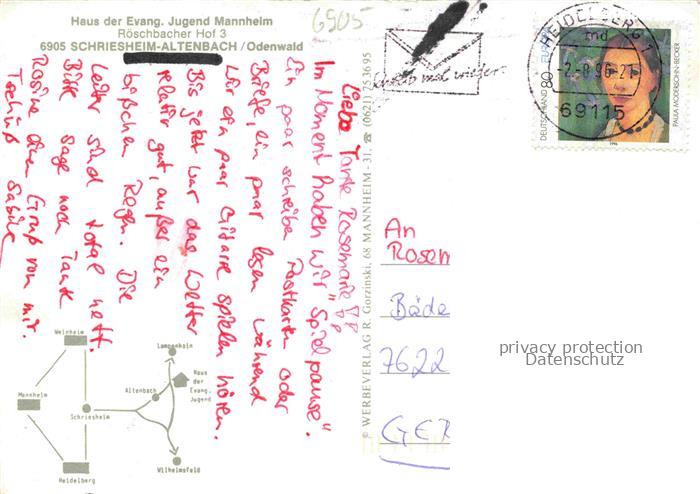 Haus der Evang. Jugend Mannheim
Röschbacher Hof 3
6905 SCHRIESHEIM-ALTENBACH / Odenwald
6905
Schreib mal wieder
HEIDELBERG 1
md
-2.-8.96-21
69115
DEUTSCHLAND 80 EUROPA
PAULA MODERSOHN-BECKER
1996
Liebe Tante Rosemarie!!
Im Moment haben wir "Spielpause".
Ein paar schreiben Postkarten oder
Briefe, ein paar lesen während
wir ein paar Gitarre spielen hören.
Bis jetzt war das Wetter
relativ gut, außer ein
bißchen Regen. Die
Leiter sind total nett.
Bitte sage noch Tante
Rosine einen Gruß von mir.
Tschüß Sabine
© WERBEVERLAG R. Gorzinski, 68 MANNHEIM-31, ☎ (0621) 753695
An
Rosem
Bäde
7622
GER
privacy protection
Datenschutz
Weinheim
Lampenhain
Haus
der
Evang.
Jugend
Altenbach
Mannheim
Schriesheim
Heidelberg
Wilhelmsfeld